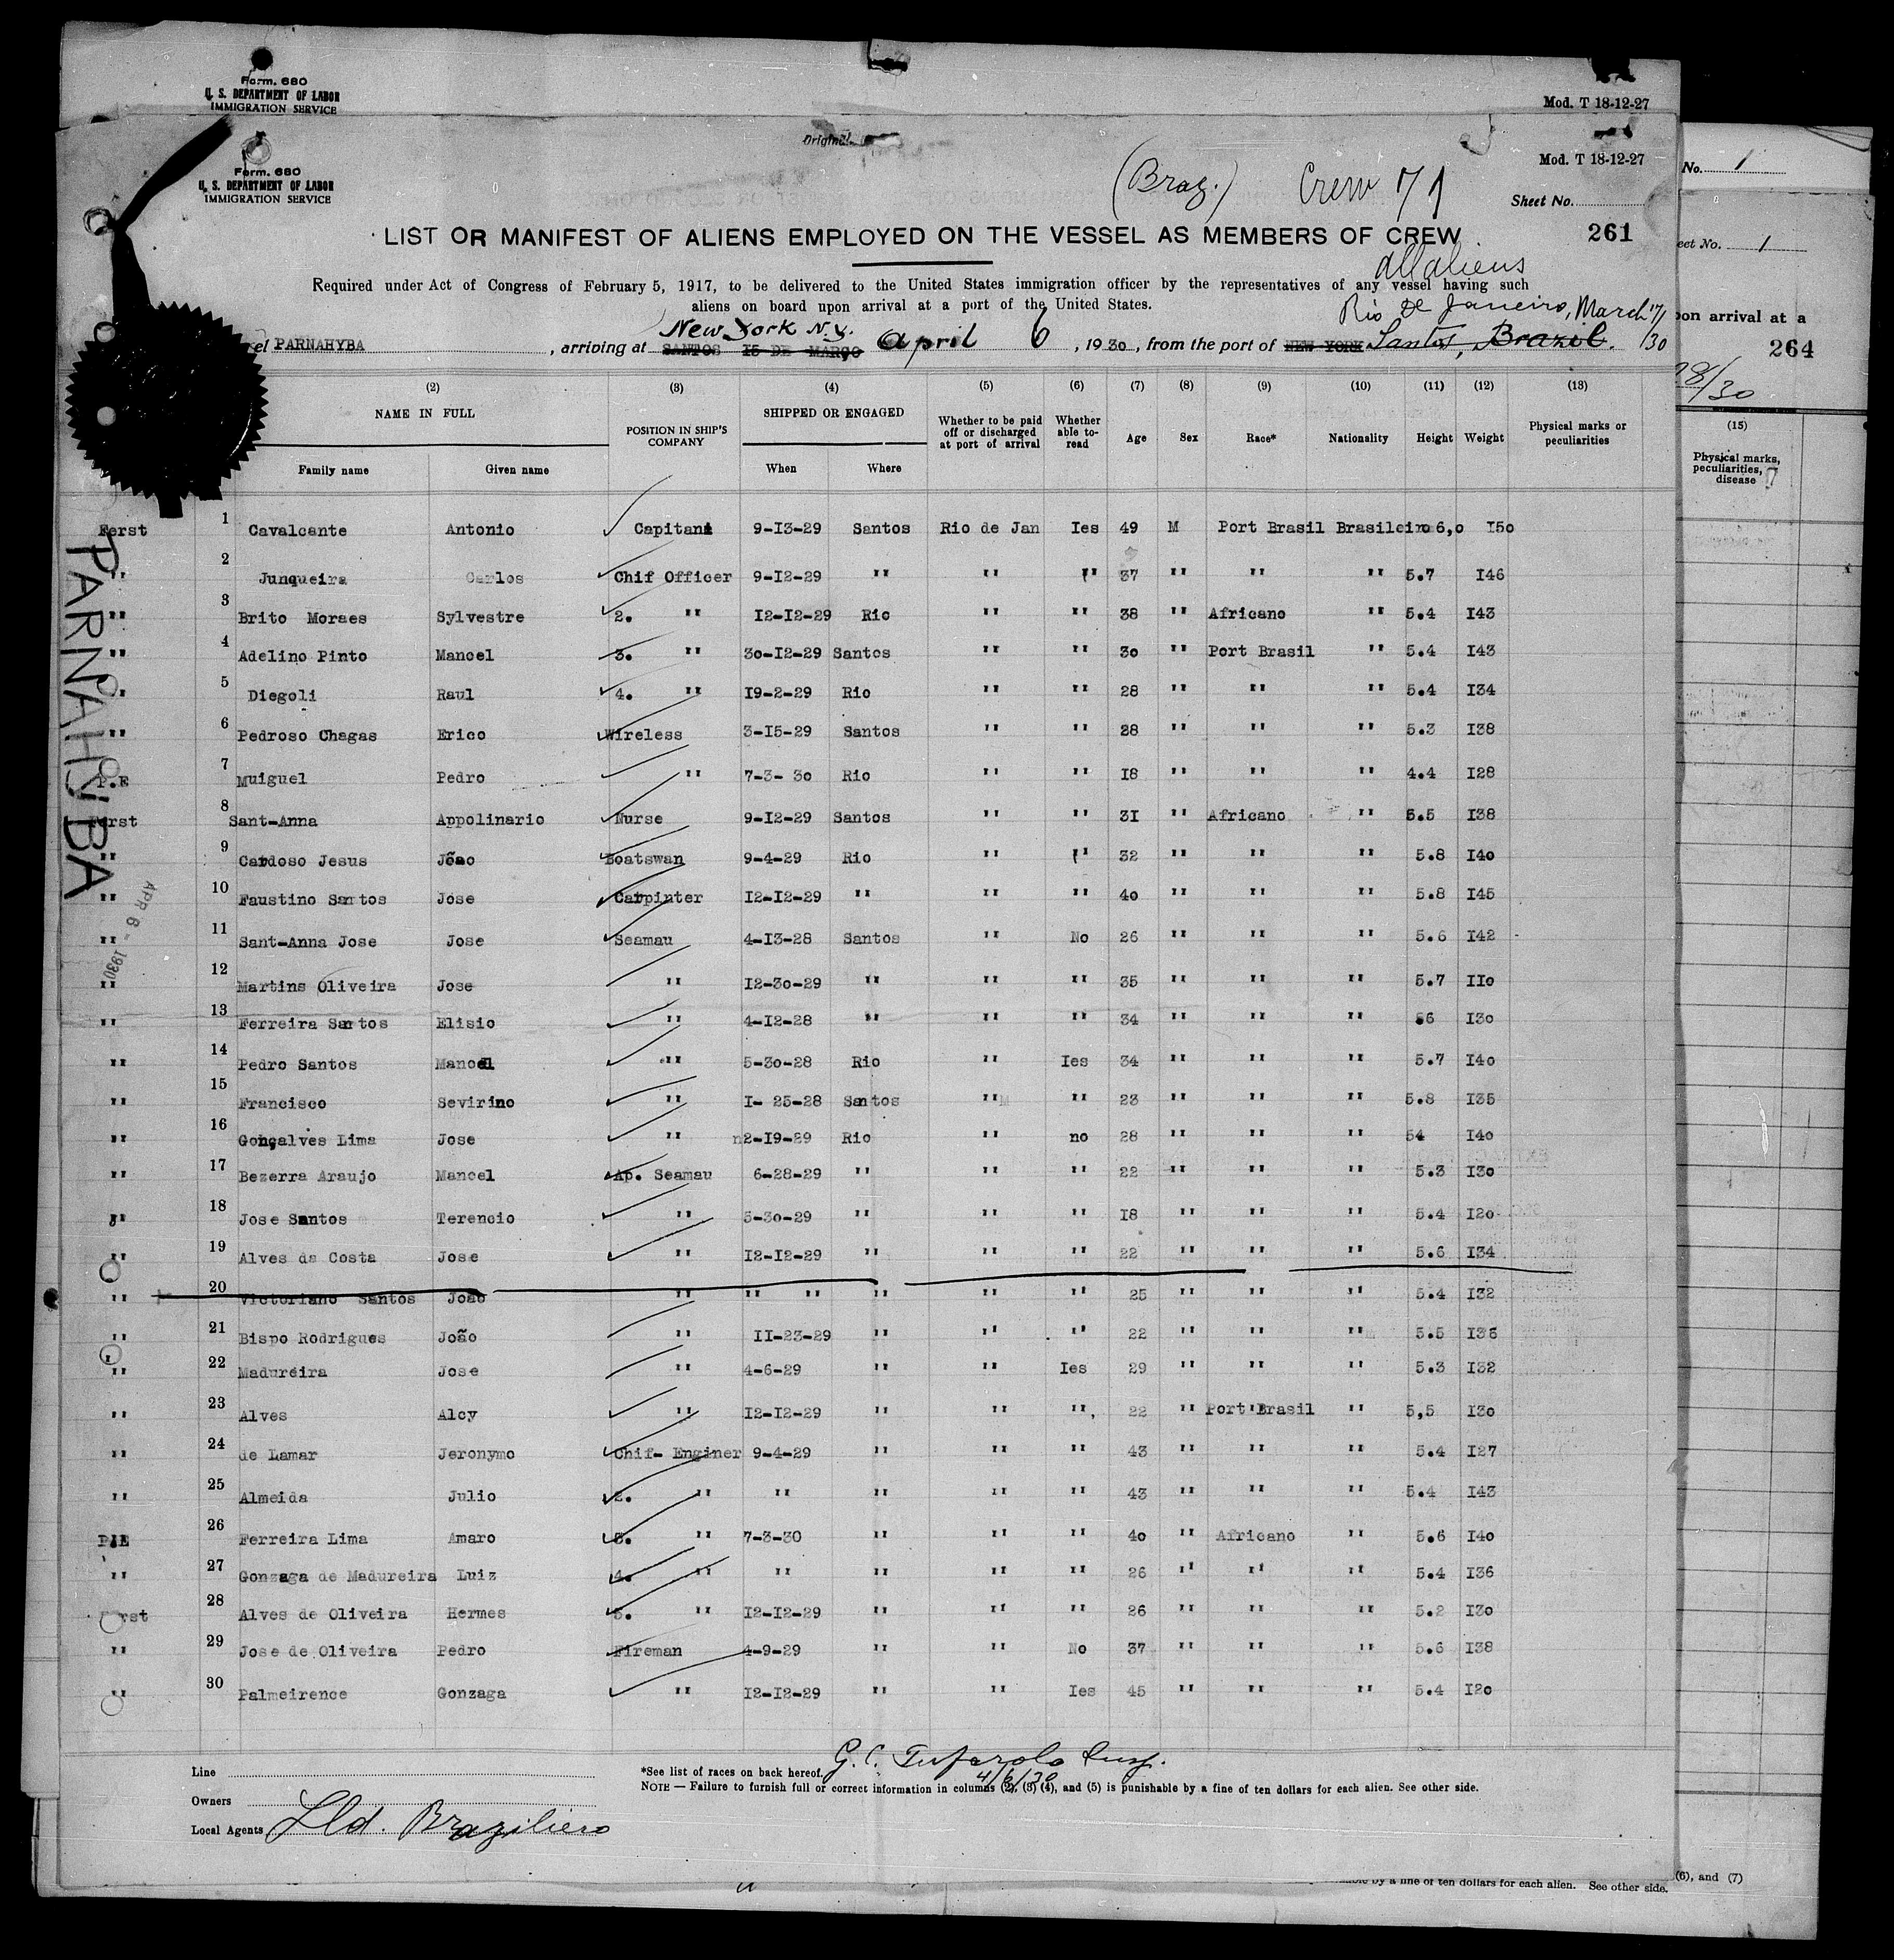 Form. 680
U. S. DEPARTMENT OF LABOR
IMMIGRATION SERVICE
Mod. T 18-12-27
Original
Form. 680
U. S. DEPARTMENT OF LABOR
IMMIGRATION SERVICE
Mod. T 18-12-27
(Braz.) Crew 71
Sheet No.
No. 1
LIST OR MANIFEST OF ALIENS EMPLOYED ON THE VESSEL AS MEMBERS OF CREW
261
eet No. 1
all aliens
Required under Act of Congress of February 5, 1917, to be delivered to the United States immigration officer by the representatives of any vessel having such
aliens on board upon arrival at a port of the United States.
Rio de Janeiro, March 17/30
pon arrival at a
264
New York N.Y.
el PARNAHYBA, arriving at SANTOS 15 DE MARÇO April 6, 1930, from the port of NEW YORK Santos, Brazil.
28/30
(2) (3) (4) (5) (6) (7) (8) (9) (10) (11) (12) (13)
NAME IN FULL POSITION IN SHIP'S COMPANY SHIPPED OR ENGAGED Whether to be paid off or discharged at port of arrival Whether able to- read Age Sex Race* Nationality Height Weight Physical marks or peculiarities
Family name Given name When Where
(15)
Physical marks, peculiarities, disease
PARNAHYBA
APR 6 - 1930
Ferst 1 Cavalcante Antonio Capitani 9-13-29 Santos Rio de Jan Ies 49 M Port Brasil Brasileiro 6,0 150
" 2 Junqueira Carlos Chif Officer 9-12-29 " " " 37 " " " 5.7 146
" 3 Brito Moraes Sylvestre 2. " 12-12-29 Rio " " 38 " Africano " 5.4 143
" 4 Adelino Pinto Manoel 3. " 30-12-29 Santos " " 30 " Port Brasil " 5.4 143
" 5 Diegoli Raul 4. " 19-2-29 Rio " " 28 " " " 5.4 134
" 6 Pedroso Chagas Erico Wireless 3-15-29 Santos " " 28 " " " 5.3 138
P.E 7 Muiguel Pedro " 7-3- 30 Rio " " 18 " " " 4.4 128
Ferst 8 Sant-Anna Appolinario Nurse 9-12-29 Santos " " 31 " Africano " 5.5 138
" 9 Cardoso Jesus João Boatswan 9-4-29 Rio " " 32 " " " 5.8 140
" 10 Faustino Santos Jose Carpinter 12-12-29 " " " 40 " " " 5.8 145
" 11 Sant-Anna Jose Jose Seamau 4-13-28 Santos " No 26 " " " 5.6 142
" 12 Martins Oliveira Jose " 12-30-29 " " " 35 " " " 5.7 110
" 13 Ferreira Santos Elisio " 4-12-28 " " " 34 " " " 56 130
" 14 Pedro Santos Manoel " 5-30-28 Rio " Ies 34 " " " 5.7 140
" 15 Francisco Sevirino " 1- 25-28 Santos " " 23 " " " 5.8 135
" 16 Gonçalves Lima Jose " 2-19-29 Rio " no 28 " " " 54 140
" 17 Bezerra Araujo Manoel Ap. Seamau 6-28-29 " " " 22 " " " 5.3 130
" 18 Jose Santos Terencio " 5-30-29 " " " 18 " " " 5.4 120
" 19 Alves da Costa Jose " 12-12-29 " " " 22 " " " 5.6 134
" 20 Victoriano Santos João " " " " " " 25 " " " 5.4 132
" 21 Bispo Rodrigues João " 11-23-29 " " " 22 " " " 5.5 136
" 22 Madureira Jose " 4-6-29 " " Ies 29 " " " 5.3 132
" 23 Alves Alcy " 12-12-29 " " " 22 " Port Brasil " 5,5 130
" 24 de Lamar Jeronymo Chif- Enginer 9-4-29 " " " 43 " " " 5.4 127
" 25 Almeida Julio 2. " " " " " 43 " " " 5.4 143
P.E 26 Ferreira Lima Amaro 3. " 7-3-30 " " " 40 " Africano " 5.6 140
" 27 Gonzaga de Madureira Luiz 4. " " " " " 26 " " " 5.4 136
Ferst 28 Alves de Oliveira Hermes 5. " 12-12-29 " " " 26 " " " 5.2 130
" 29 Jose de Oliveira Pedro Fireman 4-9-29 " " No 37 " " " 5.6 138
" 30 Palmeirence Gonzaga " 12-12-29 " " Ies 45 " " " 5.4 120
Line
Owners
Local Agents Lld. Braziliero
*See list of races on back hereof.
G. C. Tufarolo Insp.
4/6/30
NOTE — Failure to furnish full or correct information in columns (2), (3) (4), and (5) is punishable by a fine of ten dollars for each alien. See other side.
(6), and (7)
by a fine of ten dollars for each alien. See other side.